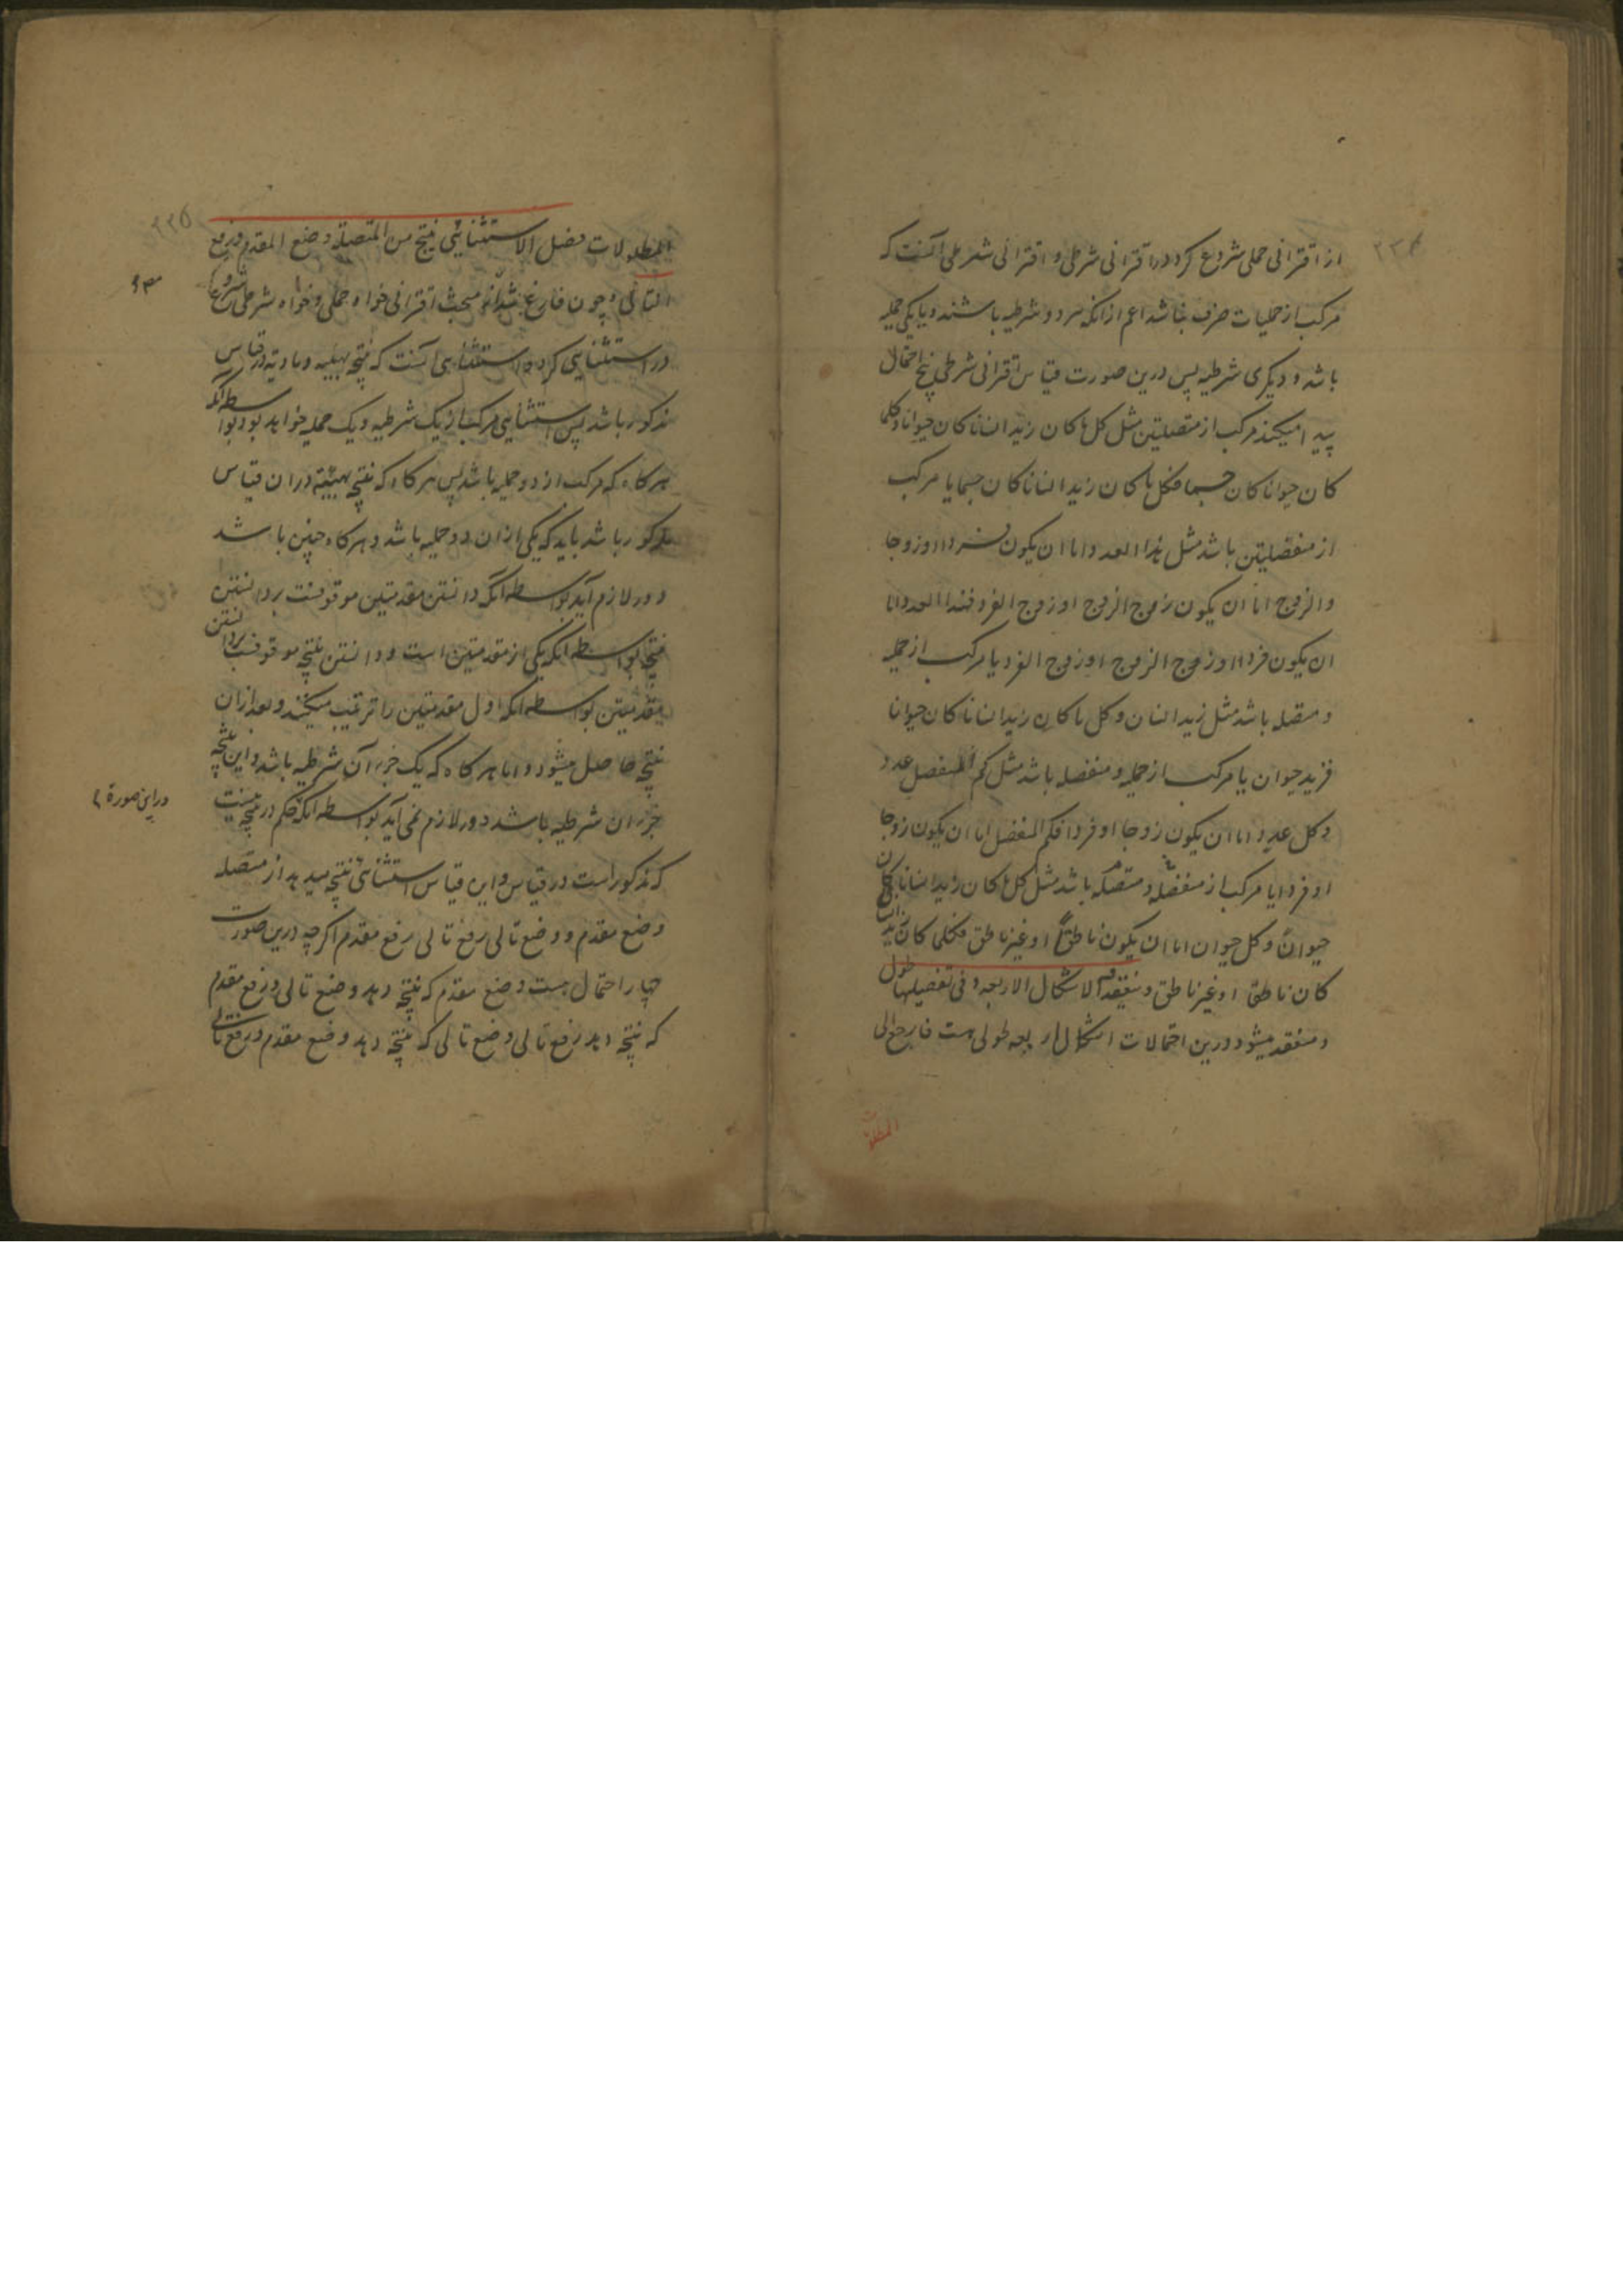 از اقترانی حملی شروع کرد در اقترانی شرطی و اقترانی شرطی آنست که
مرکب از حملیات صرف نباشد اعم از آنکه هر دو شرطیه باشند و یا یکی حملیه
باشد و دیگری شرطیه پس درین صورت قیاس اقترانی شرطی پنج احتمال
پیدا میکند مرکب از متصلتین مثل کل ما کان زید انسانا کان حیوانا و کلما
کان حیوانا کان جسما فکل ما کان زید انسانا کان جسما یا مرکب
از منفصلتین باشد مثل هذا العدد اما ان یکون فردا او زوجا
والزوج اما ان یکون زوج الزوج او زوج الفرد فهذا العدد اما
ان یکون فردا او زوج الزوج او زوج الفرد یا مرکب از حملیه
و متصله باشد مثل زید انسان و کل ما کان زید انسانا کان حیوانا
فزید حیوان یا مرکب از حملیه و منفصله باشد مثل کم المنفصل عدد
و کل عدد اما ان یکون زوجا او فردا فکم المنفصل اما ان یکون زوجا
او فردا یا مرکب از منفصله و متصله باشد مثل کل ما کان زید انسانا کان
حیوان و کل حیوان اما ان یکون ناطقا او غیر ناطق فکلما کان زید انسانا
کان ناطق او غیر ناطق و ینعقد فیه الاشکال الاربعه و فی تفصیلها طول
و منعقد میشود درین احتمالات اشکال اربعه طولی هست فارجع الی
المطولات
۲۳۵
المطولات فصل الاستثنائی ینتج من المتصلة وضع المقدم و رفع
التالی و چون فارغ شد از مبحث اقترانی خواه حملی و خواه شرطی شروع
در استثنایی کرد و استثنایی آنست که نتیجه بهیئه و مادته در قیاس
مذکور باشد پس استثنایی مرکب از یک شرطیه و یک حملیه خواهد بود بواسطه آنکه
هرگاه که مرکب از دو حملیه باشد پس هرگاه که نتیجه بهیئته در ان قیاس
مذکور باشد باید که یکی از ان دو حملیه باشد و هرگاه چنین باشد
دور لازم آید بواسطه آنکه دانستن مقدمتین موقوفست بر دانستن
نتیجه بواسطه آنکه یکی از مقدمتین است و دانستن نتیجه موقوفست بر دانستن
مقدمتین بواسطه آنکه اول مقدمتین را ترتیب میکنند و بعد ازان
نتیجه حاصل میشود و اما هرگاه که یک جزء آن شرطیه باشد و این نتیجه
جزء ان شرطیه باشد دور لازم نمی آید بواسطه آنکه حکم در نتیجه نیست
در این صورة
که مذکور است در قیاس و این قیاس استثنائی نتیجه میدهد از متصله
وضع مقدم و وضع تالی رفع تالی رفع مقدم اگرچه درین صورت
چهار احتمال هست وضع مقدم که نتیجه دهد وضع تالی و رفع مقدم
که نتیجه دهد رفع تالی وضع تالی که نتیجه دهد وضع مقدم و رفع تالی